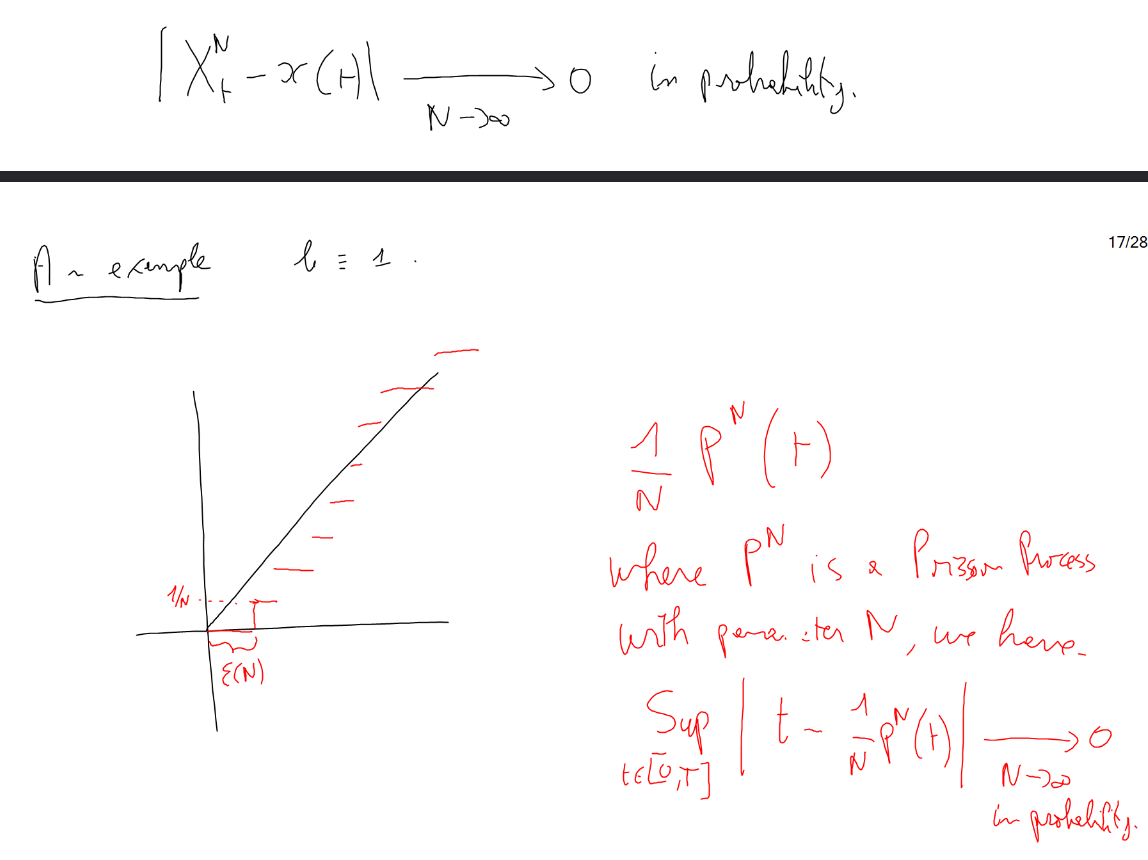 | X_t^N - x(t) | → 0 in probability.
N→∞
17/28
An example b ≡ 1 .
1/N
ξ(N)
1/N P^N (t)
where P^N is a Poisson Process
with parameter N, we have
Sup | t - 1/N P^N(t) | → 0
t∈[0,T] N→∞
in probability.